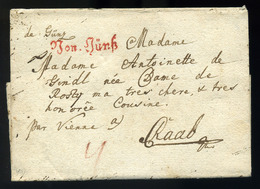 de Güns
Von. Günß Madame
Madame Antoinette de
Gindl née Dame de
Rosty ma tres chere, & tres
honorée Cousine.
par Vienne a
Raab